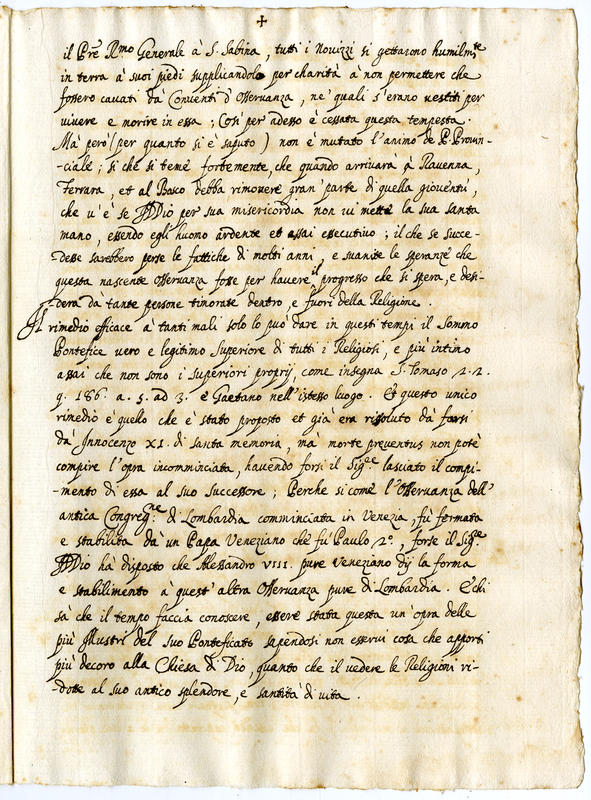 ✝
il Prẽ Rmo Generale à S. Sabina, tutti i Novizzi si gettarono humilmte
in terra à suoi piedi supplicandolo per charità à non permettere che
fossero cavati dà Conventi d'Osservanza, ne' quali s'erano vestiti per
vivere e morire in essa; Così per adesso è cessata questa tempesta.
Mà però (per quanto si è saputo) non è mutato l'animo de P. Provin-
-ciale; si che si teme fortemente, che quando arrivarà à Ravenna,
Ferrara, et al Bosco debba rimovere gran parte di quella gioventù,
che v'è se Iddio per sua misericordia non vi mette la sua santa
mano, essendo egli huomo ardente et assai essecutivo; il che se succe-
desse sarebbero perse le fattiche di molti anni, e svanite le speranze che
questa nascente Osservanza fosse per havere il progresso che si spera, e desi-
-dera dà tante persone timorate dentro, e fuori della Religione.
Il rimedio efficace a tanti mali solo lo può dare in questi tempi il Sommo
Pontefice vero e legitimo Superiore di tutti i Religiosi, e più intimo
assai che non sono i Superiori proprij, come insegna S. Tomaso 2. 2.
q. 186. a. 5. ad 3. e Gaetano nell'istesso luogo. Et questo unico
rimedio è quello che è stato proposto et già era risoluto dà farsi
dà Innocenzo XI. di santa memoria, ma morte preventus non potè
compire l'opra incomminciata, havendo forsi il Sigre lasciato il compi-
-mento di essa al suo successore; Perche si come l'Osservanza dell'
antica Congregne di Lombardia comminciata in Venezia, fù fermata
e stabilita dà un Papa Veneziano che fù Paulo 2º, forse il Sigre
Iddio hà disposto che Alessandro VIII. pure Veneziano dij la forma
e stabilimento à quest'altra Osservanza pure di Lombardia. E chi
sà che il tempo faccia conoscere, essere stata questa un'opra delle
più Illustri del suo Ponteficato sapendosi non esservi cosa che apporti
più decoro alla Chiesa di Dio, quanto che il vedere le Religioni ri-
-dotte al suo antico splendore, e santità di vita.